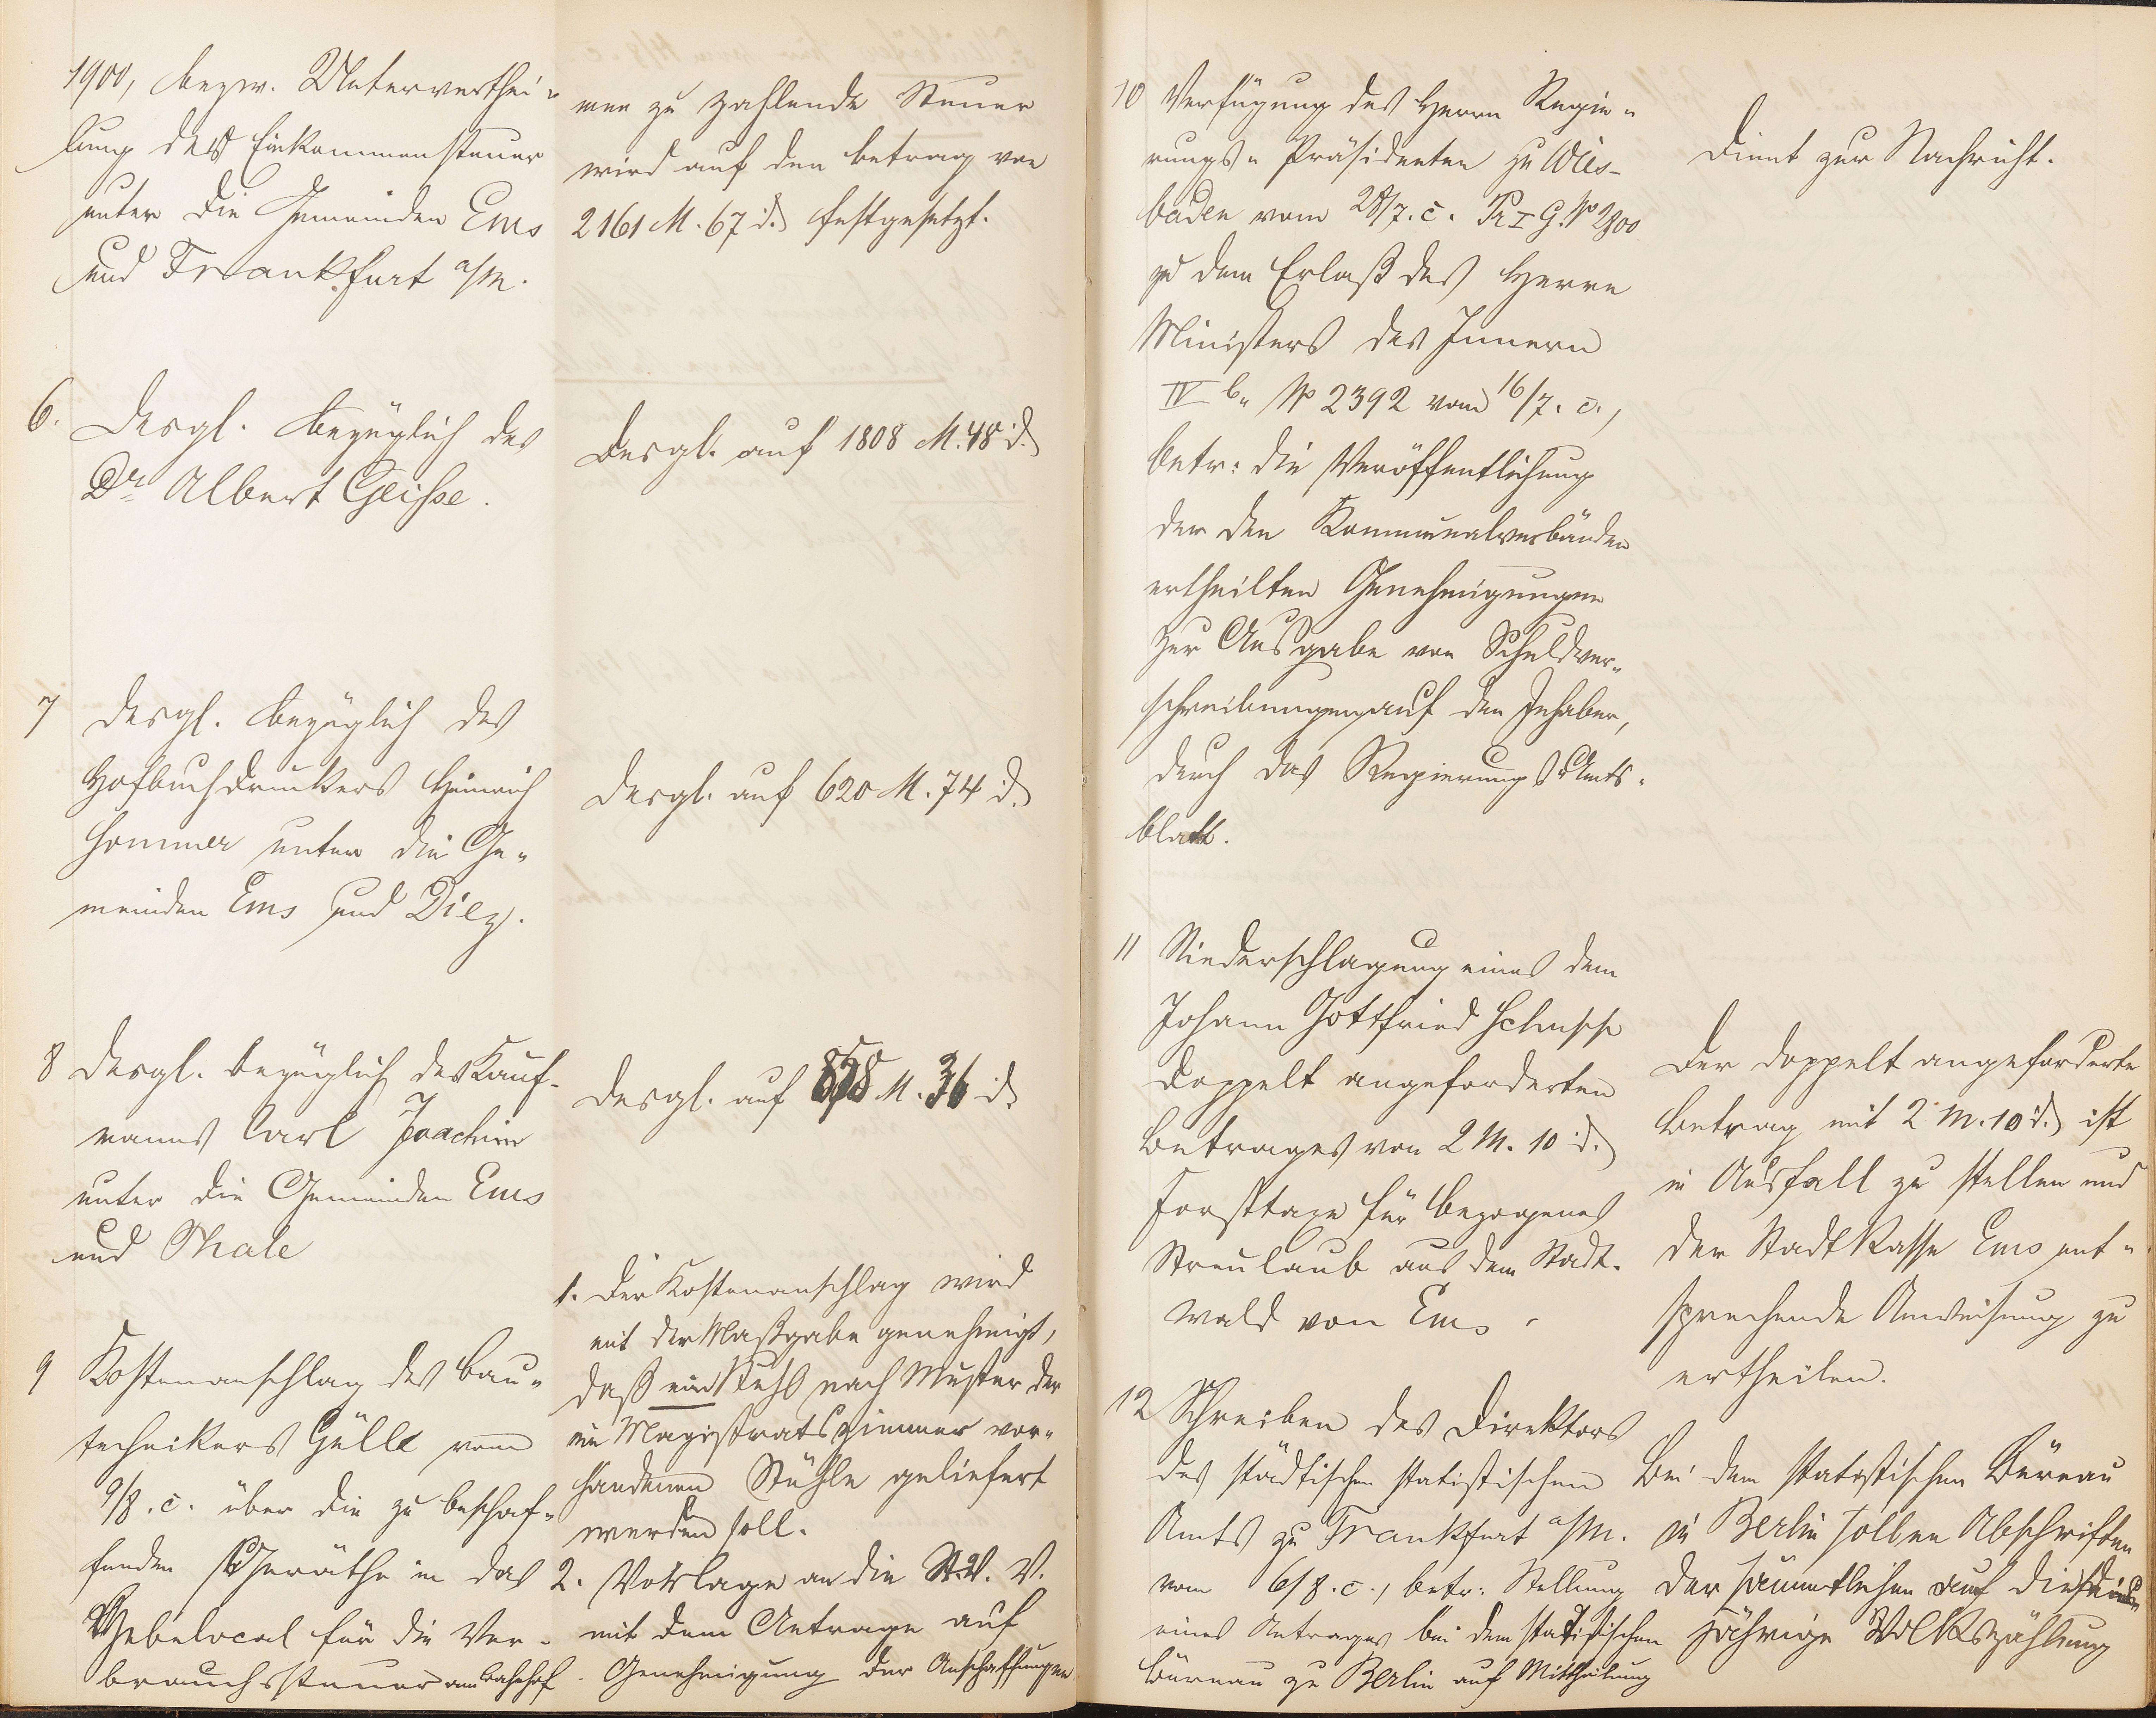 1900, bezw. Untervertheí-
lung der Einkommensteuer
unter die Gemeinden Ems
und Frankfurt a/M.
men zu zahlende Steuer
wird auf den Betrag von
2161 M. 67 d. festgesetzt.
6. Desgl. bezüglich des
Dr. Albert Geisse.
Desgl. auf 1808 M. 48 d.
7 Desgl. bezüglich des
Hofbuchdruckers Heinrich
Sommer unter die Ge-
meinden Ems und Diez.
Desgl. auf 620 M. 74 d.
8 Desgl. bezüglich des Kauf-
manns Carl Joachim
unter die Gemeinden Ems
und Thale
Desgl. auf 858 M. 36 d.
9 Kostenanschlag des Bau-
technikers Gülle vom
9/8. c. über die zu beschaf-
fenden Geräthe in das
Hebelocal für die Ver-
brauchssteuer am Bahnhof
1. Der Kostenanschlag wird
mit der Maßgabe genehmigt,
daß ein Stuhl nach Muster der
im Magistratszimmer vor-
handenen Stühle geliefert
werden soll.
2. Vorlage an die St. V. V.
mit dem Antrage auf
Genehmigung der Anschaffungen
10 Verfügung des Herrn Regie-
rungs-Präsidenten zu Wies-
baden vom 28/7. c. Pr I G. No 2900
zu dem Erlaß des Herrn
Ministers des Innern
IV b. No 2392 vom 16/7. c.,
betr: die Veröffentlichung
der den Kommunalverbänden
ertheilten Genehmigungen
zur Ausgabe von Schuldver-
schreibungen auf den Inhaber,
durch das Regierungs-Amts-
blatt.
Dient zur Nachricht.
11 Niederschlagung eines dem
Johann Gottfried
doppelt angeforderten
Betrages von 2 M. 10 d.
Forsttaxe für bezogenes
Streulaub aus dem Stadt-
wald von Ems.
Der doppelt angeforderte
Betrag mit 2 M. 10 d. ist
in Ausfall zu stellen und
der Stadtkasse Ems ent-
sprechende Anweisung zu
ertheilen.
12 Schreiben des Direktors
des städtischen statistischen
Amts zu Frankfurt a/M.
vom 6/8. c., betr: Stellung
eines Antrages bei dem statistischen
Büreau zu Berlin auf Mittheilung
Bei dem statistischen Büreau
in Berlin sollen Abschriften
der sämmtlichen auf die dies-
jährige Volkszählung